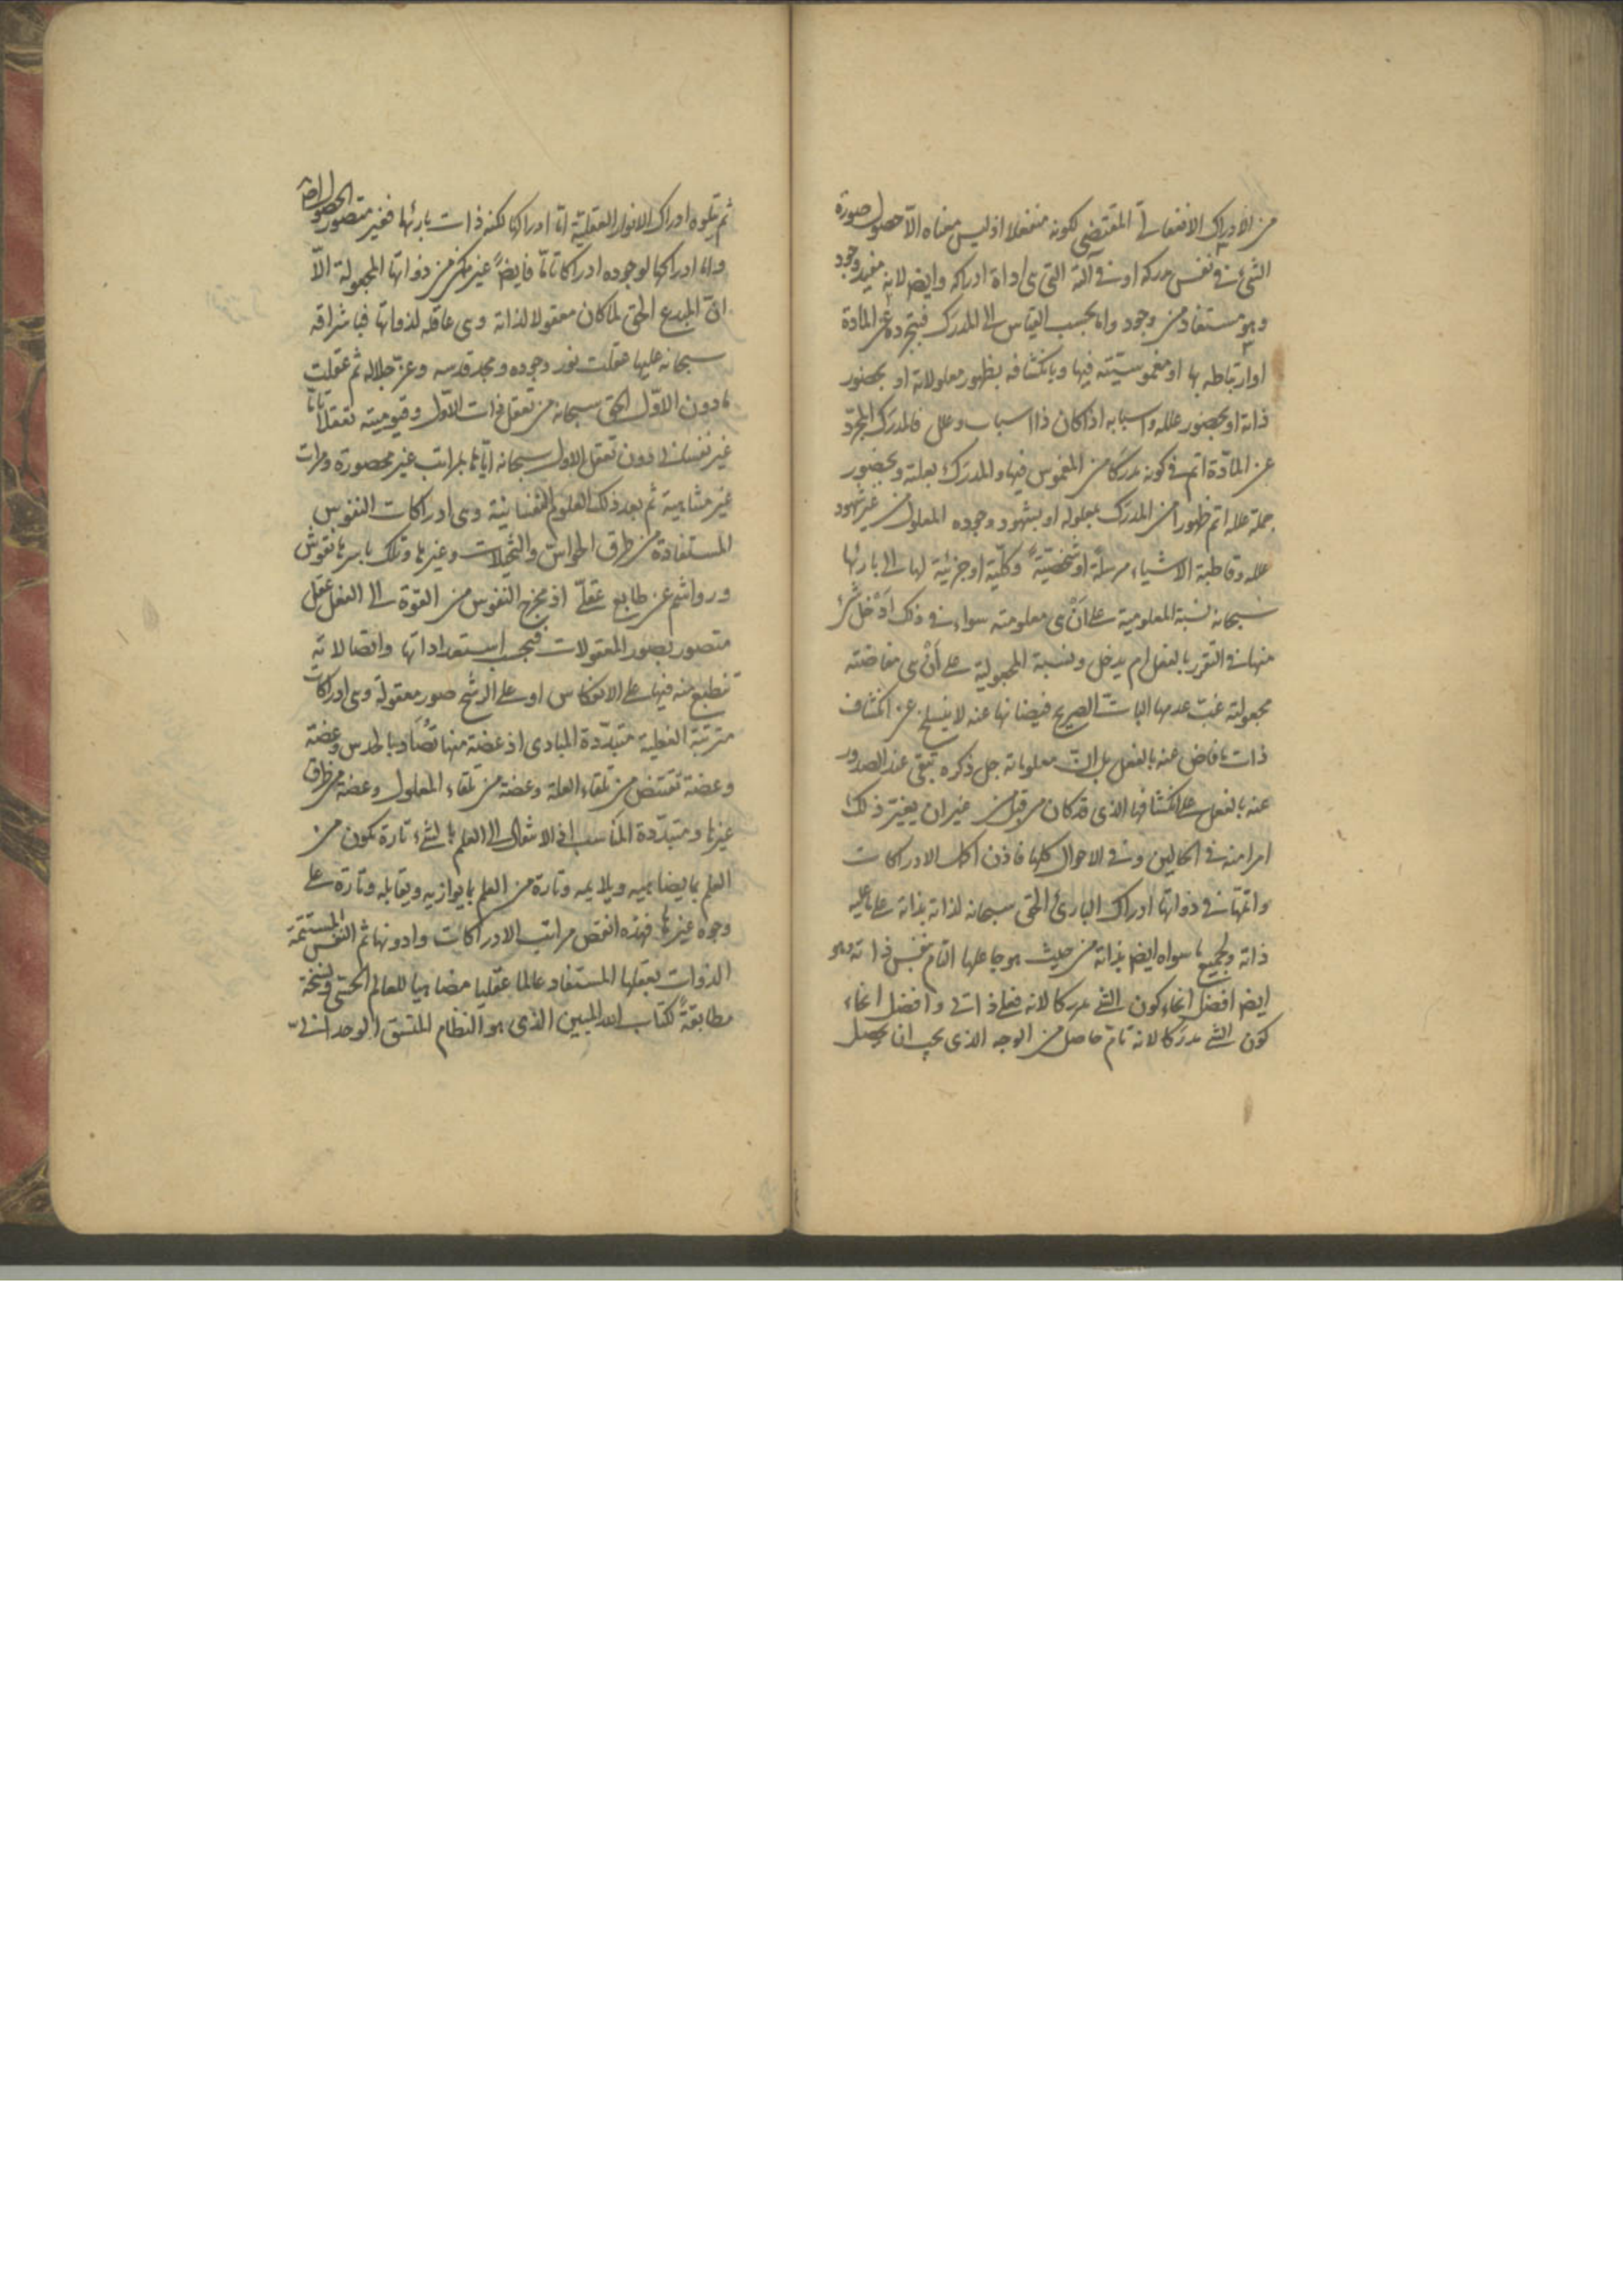 من الادراك الانفعالي المقتضي لكونه منفعلا اذ ليس معناه الّا حصول صورة
الشئ في نفس مدركه او في آلته التي هي اداة ادراكه وايضا لانه مفيد وجود
وهو مستفاد من وجود واما بحسب القياس الى المدرك فبتجرده عن المادة
او ارتباطه بها او مغموسيته فيها وبانكشافه بظهور معلولاته او بحضور
ذاته او بحضور علله واسبابه اذا كان ذا اسباب وعلل فالمدرك المجرّد
عن المادّة اتم في كونه مدركا من المغموس فيها والمدرك بعلته وبحضور
جملة علله اتم ظهورا من المدرك بمعلوله او بشهود وجوده المعلول من غير شهود
علله وقاطبة الاشياء مرسلة او شخصيّةً وكليّة او جزئية لها الى بارئها
سبحانه نسبة المعلومية على انّ هي معلومته سواء في ذلك ادخل شئ
منها في التقرر بالفعل ام لم يدخل ونسبة المجعولية على انّ هي مفاضته
مجعولته غب عدمها البات الصريح فيضانها عنه لا ينسلخ عن انكشاف
ذات ما فاض عنه بالفعل بل ان معلوماته جل ذكره تبقى عند الصدور
عنه بالفعل على انكشافها الذي قد كان من قبل من غير ان يغيّر ذلك
امرا منه في الحالين وفي الاحوال كلها فاذن اكمل الادراكات
واتمها في ذواتها ادراك البارئ الحق سبحانه لذاته بذاته على ما عليه
ذاته ولجميع ما سواه ايضا بذاته من حيث هو جاعلها التام بنفس ذاته وهو
ايضا افضل انحاء كون الشئ مدركا لانه فعلي ذاتي وافضل انحاء
كون الشئ مدركا لانه تامّ حاصل من الوجه الذي يجب ان يحصل
ثم يتلوه ادراك الانوار العقلية امّا ادراكها لكنه ذات بارئها فغير متصور الحصول اصلا
واما ادراكها لوجوده ادراكا تامّا فايضاً غير ممكن من ذواتها المجعولة الّا
انّ المبدع الحق لما كان معقولا لذاته وهي عاقلة لذواتها فباشراقه
سبحانه عليها عقلت نور وجوده ومجد قدسه وعزّ جلاله ثم عقلت
ما دون الاوّل الحق سبحانه من تعقل ذات الاوّل وقيوميته تعقلا تامّا
غير نفساني دون تعقل الاول سبحانه ايّاها بمراتب غير محصورة ومرات
غير متناهية ثم بعد ذلك العلوم النفسانية وهي ادراكات النفوس
المستفادة من طرق الحواسّ والتخيلات وغيرها وتلك باسرها نقوش
ورواشم عن طابع عقليّ اذ مخرج النفوس من القوّة الى الفعل عقل
متصور بصور المعقولات فبحسب استعداداتها واتصالاته
تنطبع منه فيها على الانعكاس او على الرشح صور معقولة وهي ادراكات
مترتبة الفعلية متبدّدة المبادى اذ عضة منها تصاد بالحدس وعضة
وعضة تقتنص من تلقاء العلة وعضة من تلقاء المعلول وعضة من طرق
غيرها ومتبدّدة المناسب اذ الانتقال الى العلم بالشئ تارة يكون من
العلم بما يضاهيه ويلايمه وتارة من العلم بما يوازيه ويقابله وتارة على
وجوه غيرها فهذه انقص مراتب الادراكات وادونها ثم النفس المستتمّة
الذوات بعقلها المستفاد عالما عقليا مضاهيا للعالم الحسّي ونسخة
مطابقةً لكتاب الله المبين الذي هو النظام المتسق الوحداني